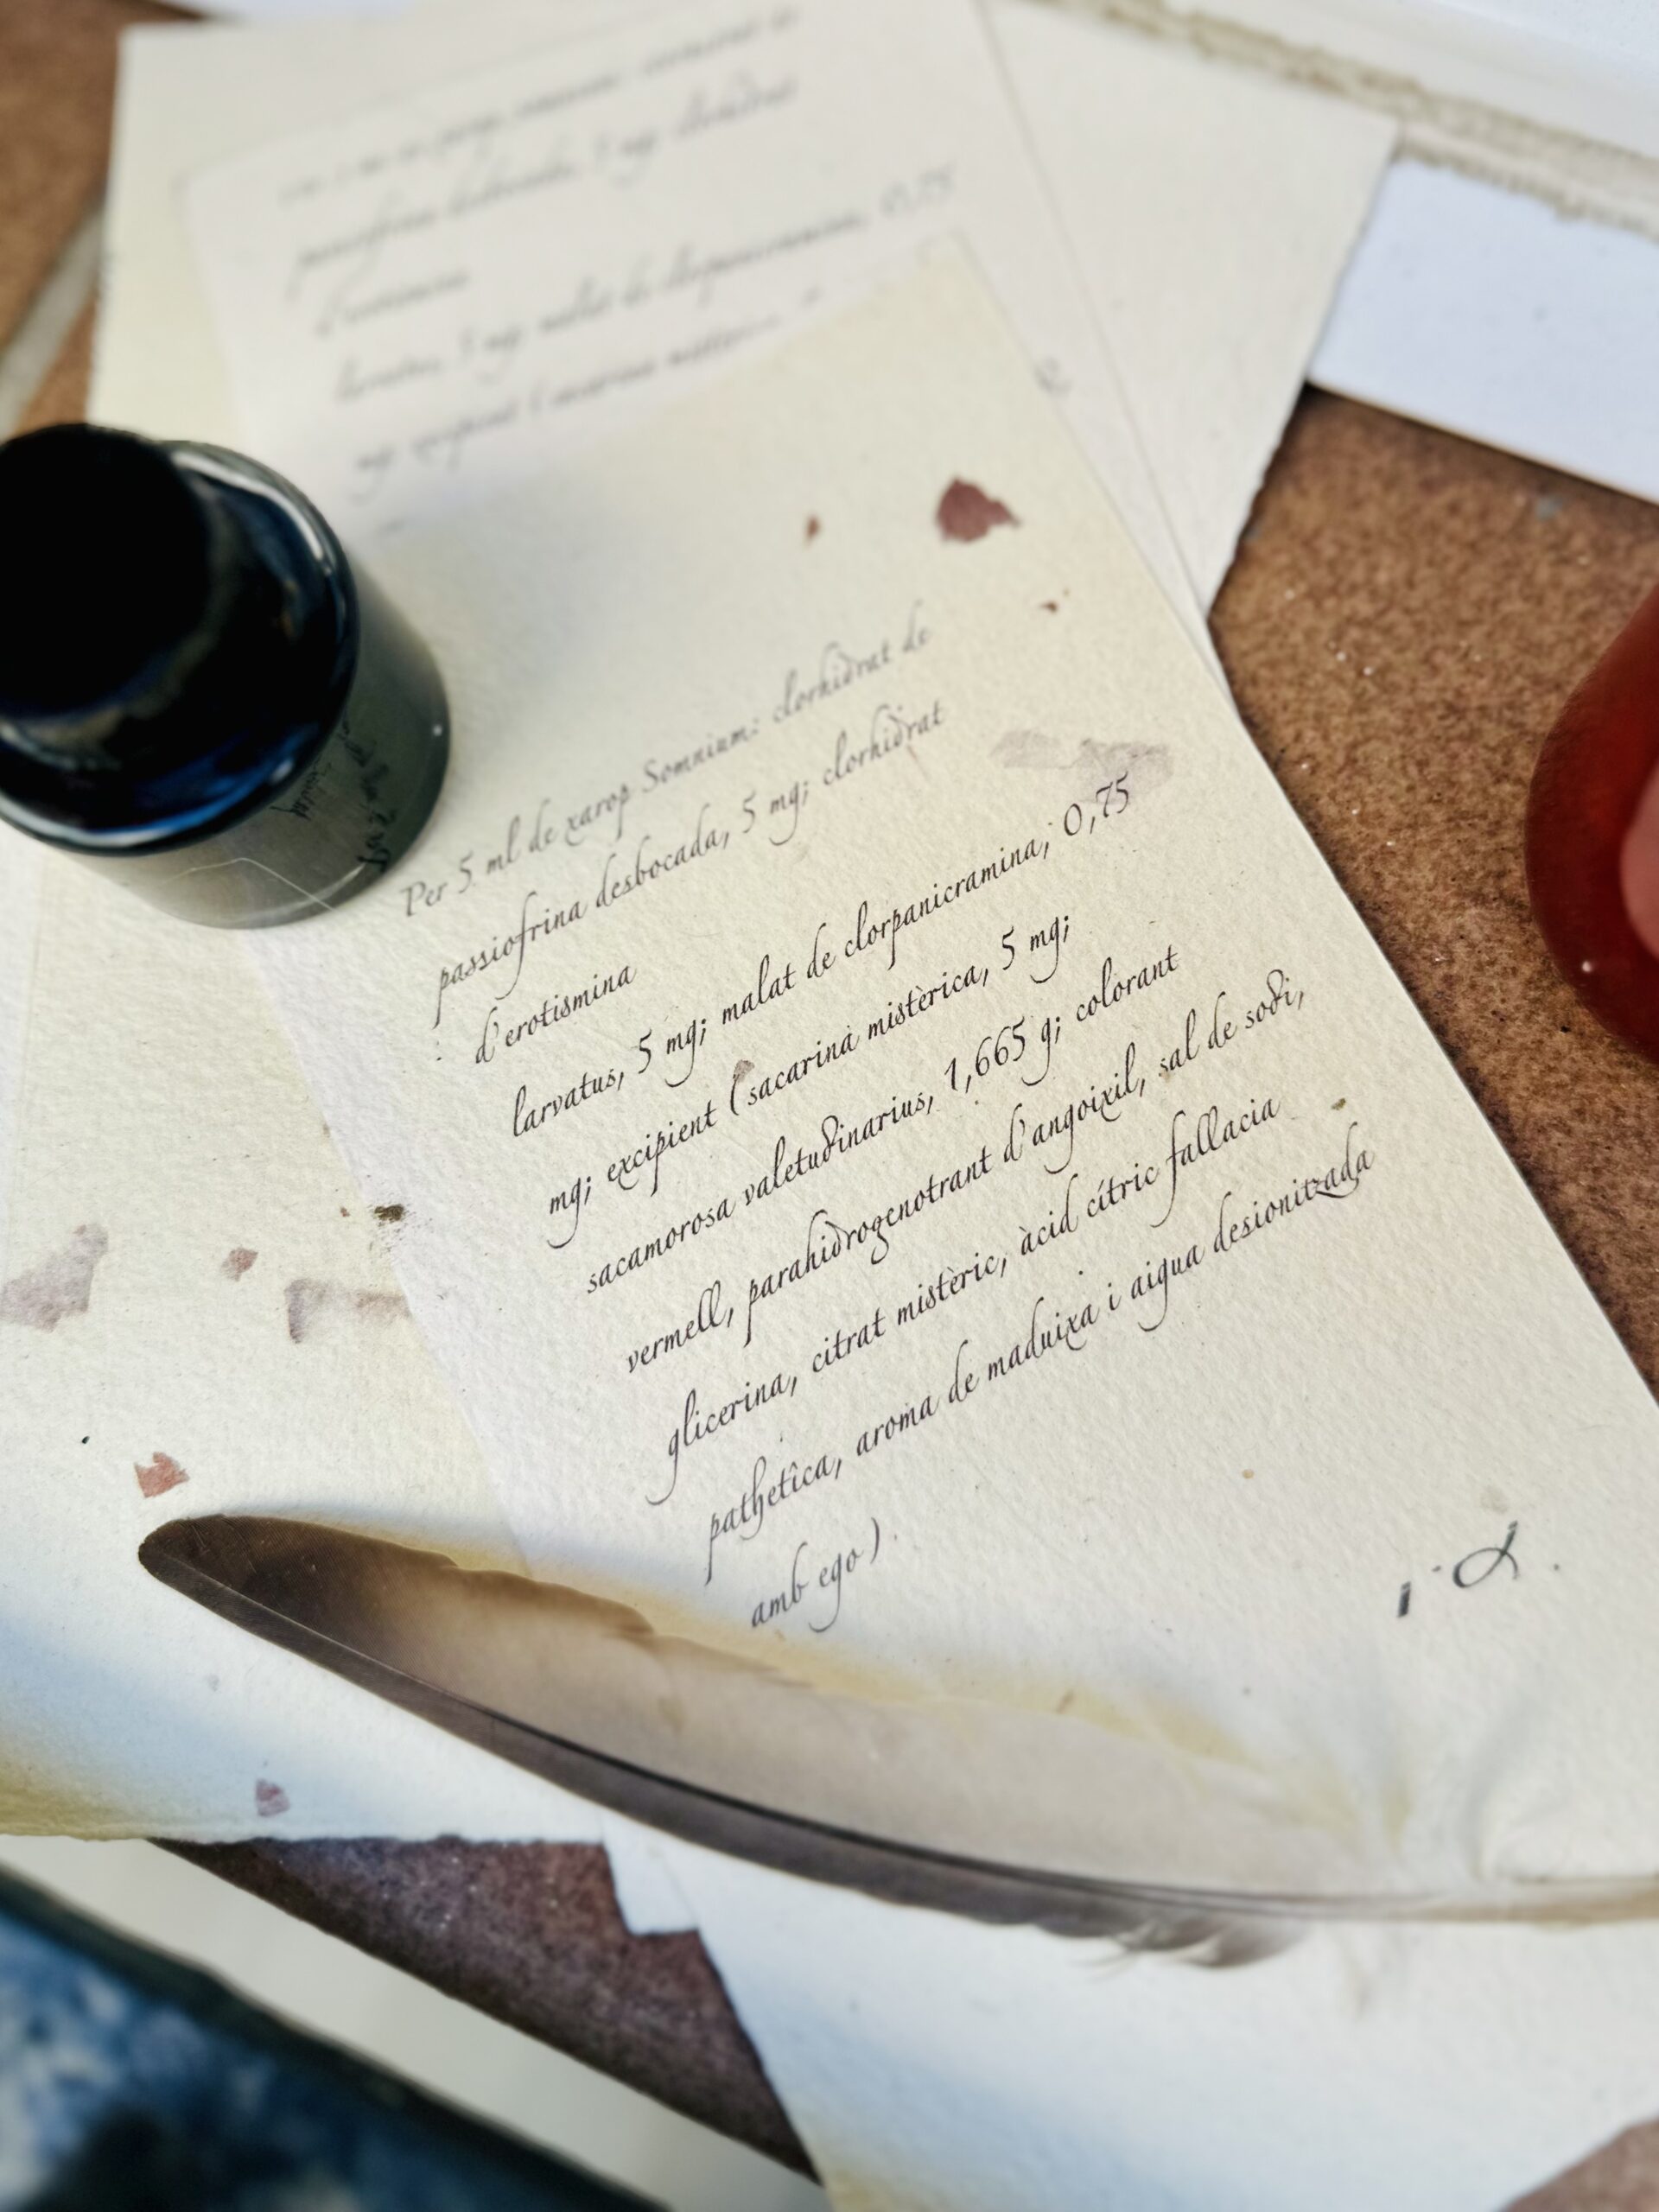 passiofrina
d'erotismina
larvatus, 5 mg; malat de clorpanicramina, 0,75
mg; excipient (
Per 5 ml de xarop Somnium: clorhidrat de
passiofrina desbocada, 5 mg; clorhidrat
d'erotismina
larvatus, 5 mg; malat de clorpanicramina, 0,75
mg; excipient (sacarina mistèrica, 5 mg;
sacamorosa valetudinarius, 1,665 g; colorant
vermell, parahidrogenotrant d'angoixil, sal de sodi,
glicerina, citrat mistèric, àcid cítric fallacia
pathetica, aroma de maduixa i aigua desionitzada
amb ego).